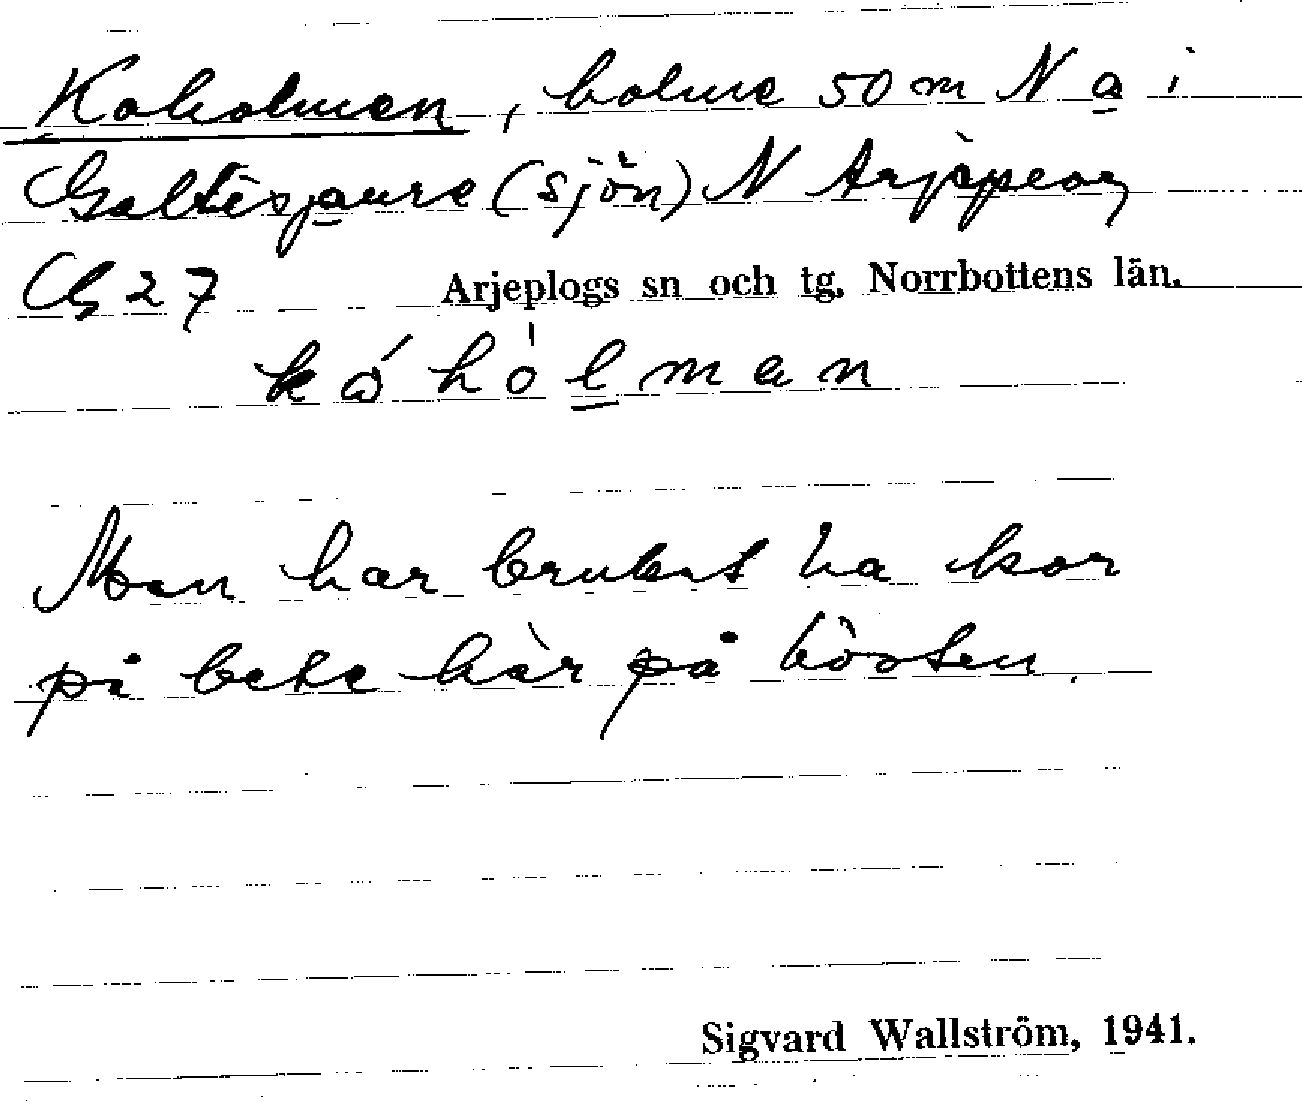 Koholmen, holme 50 m N a i
Galtisjaure (sjön) N Arjepeog
G 27 Arjeplogs sn och tg. Norrbottens län.
kóhòlman
Man har brukat ha kor
på bete här på hösten.
Sigvard Wallström, 1941.